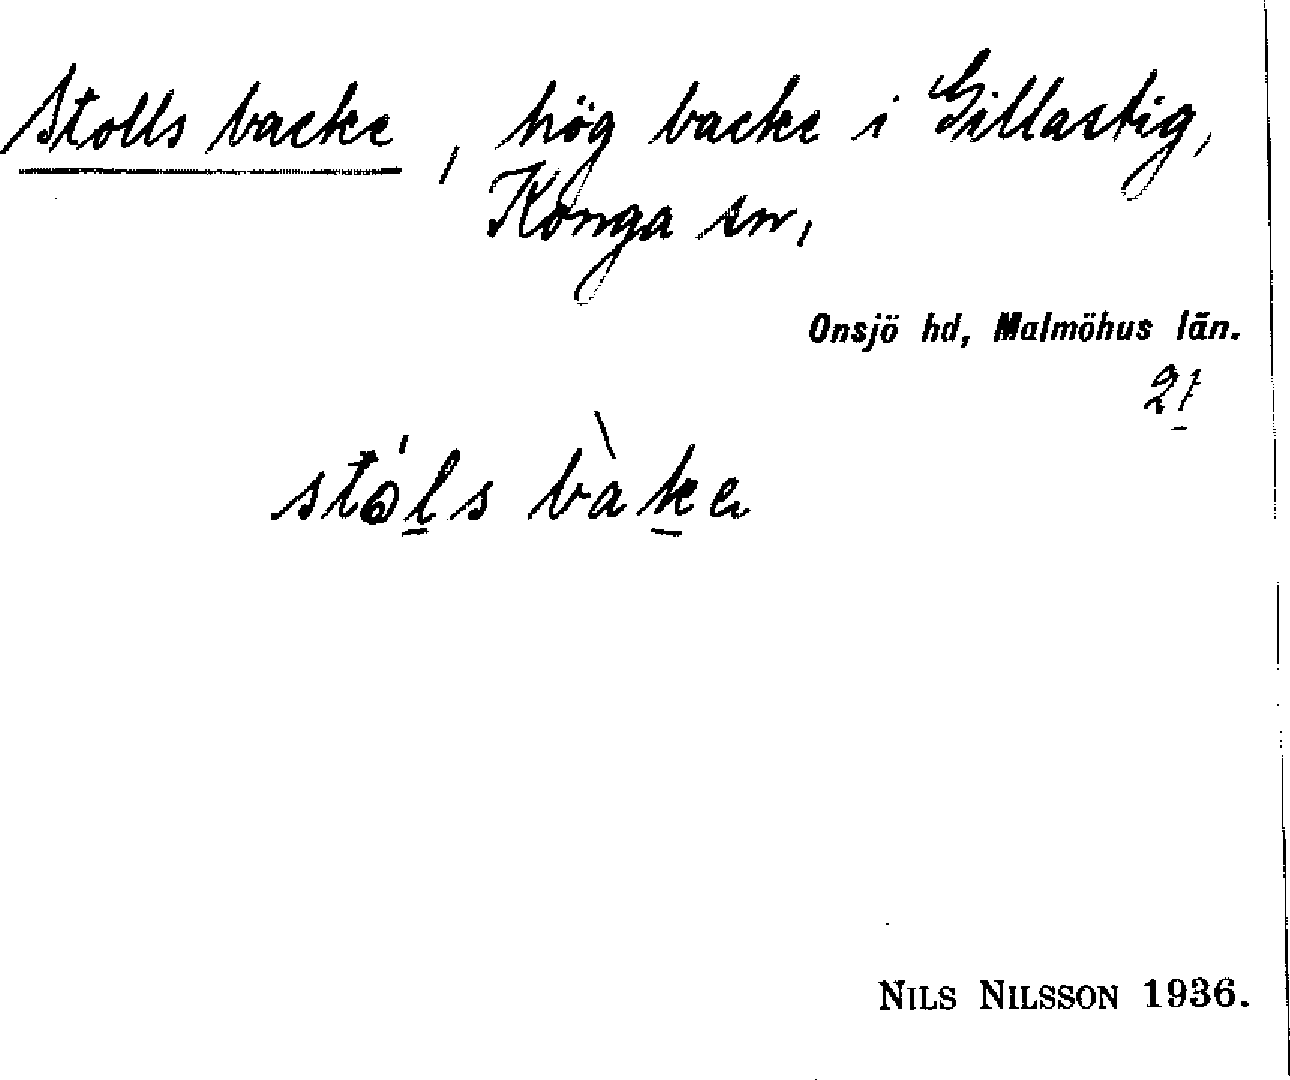 Stolls backe, hög backe i Gillastig,
Konga sn,
Onsjö hd, Malmöhus län.
21
stó̀ls bàke
NILS NILSSON 1936.